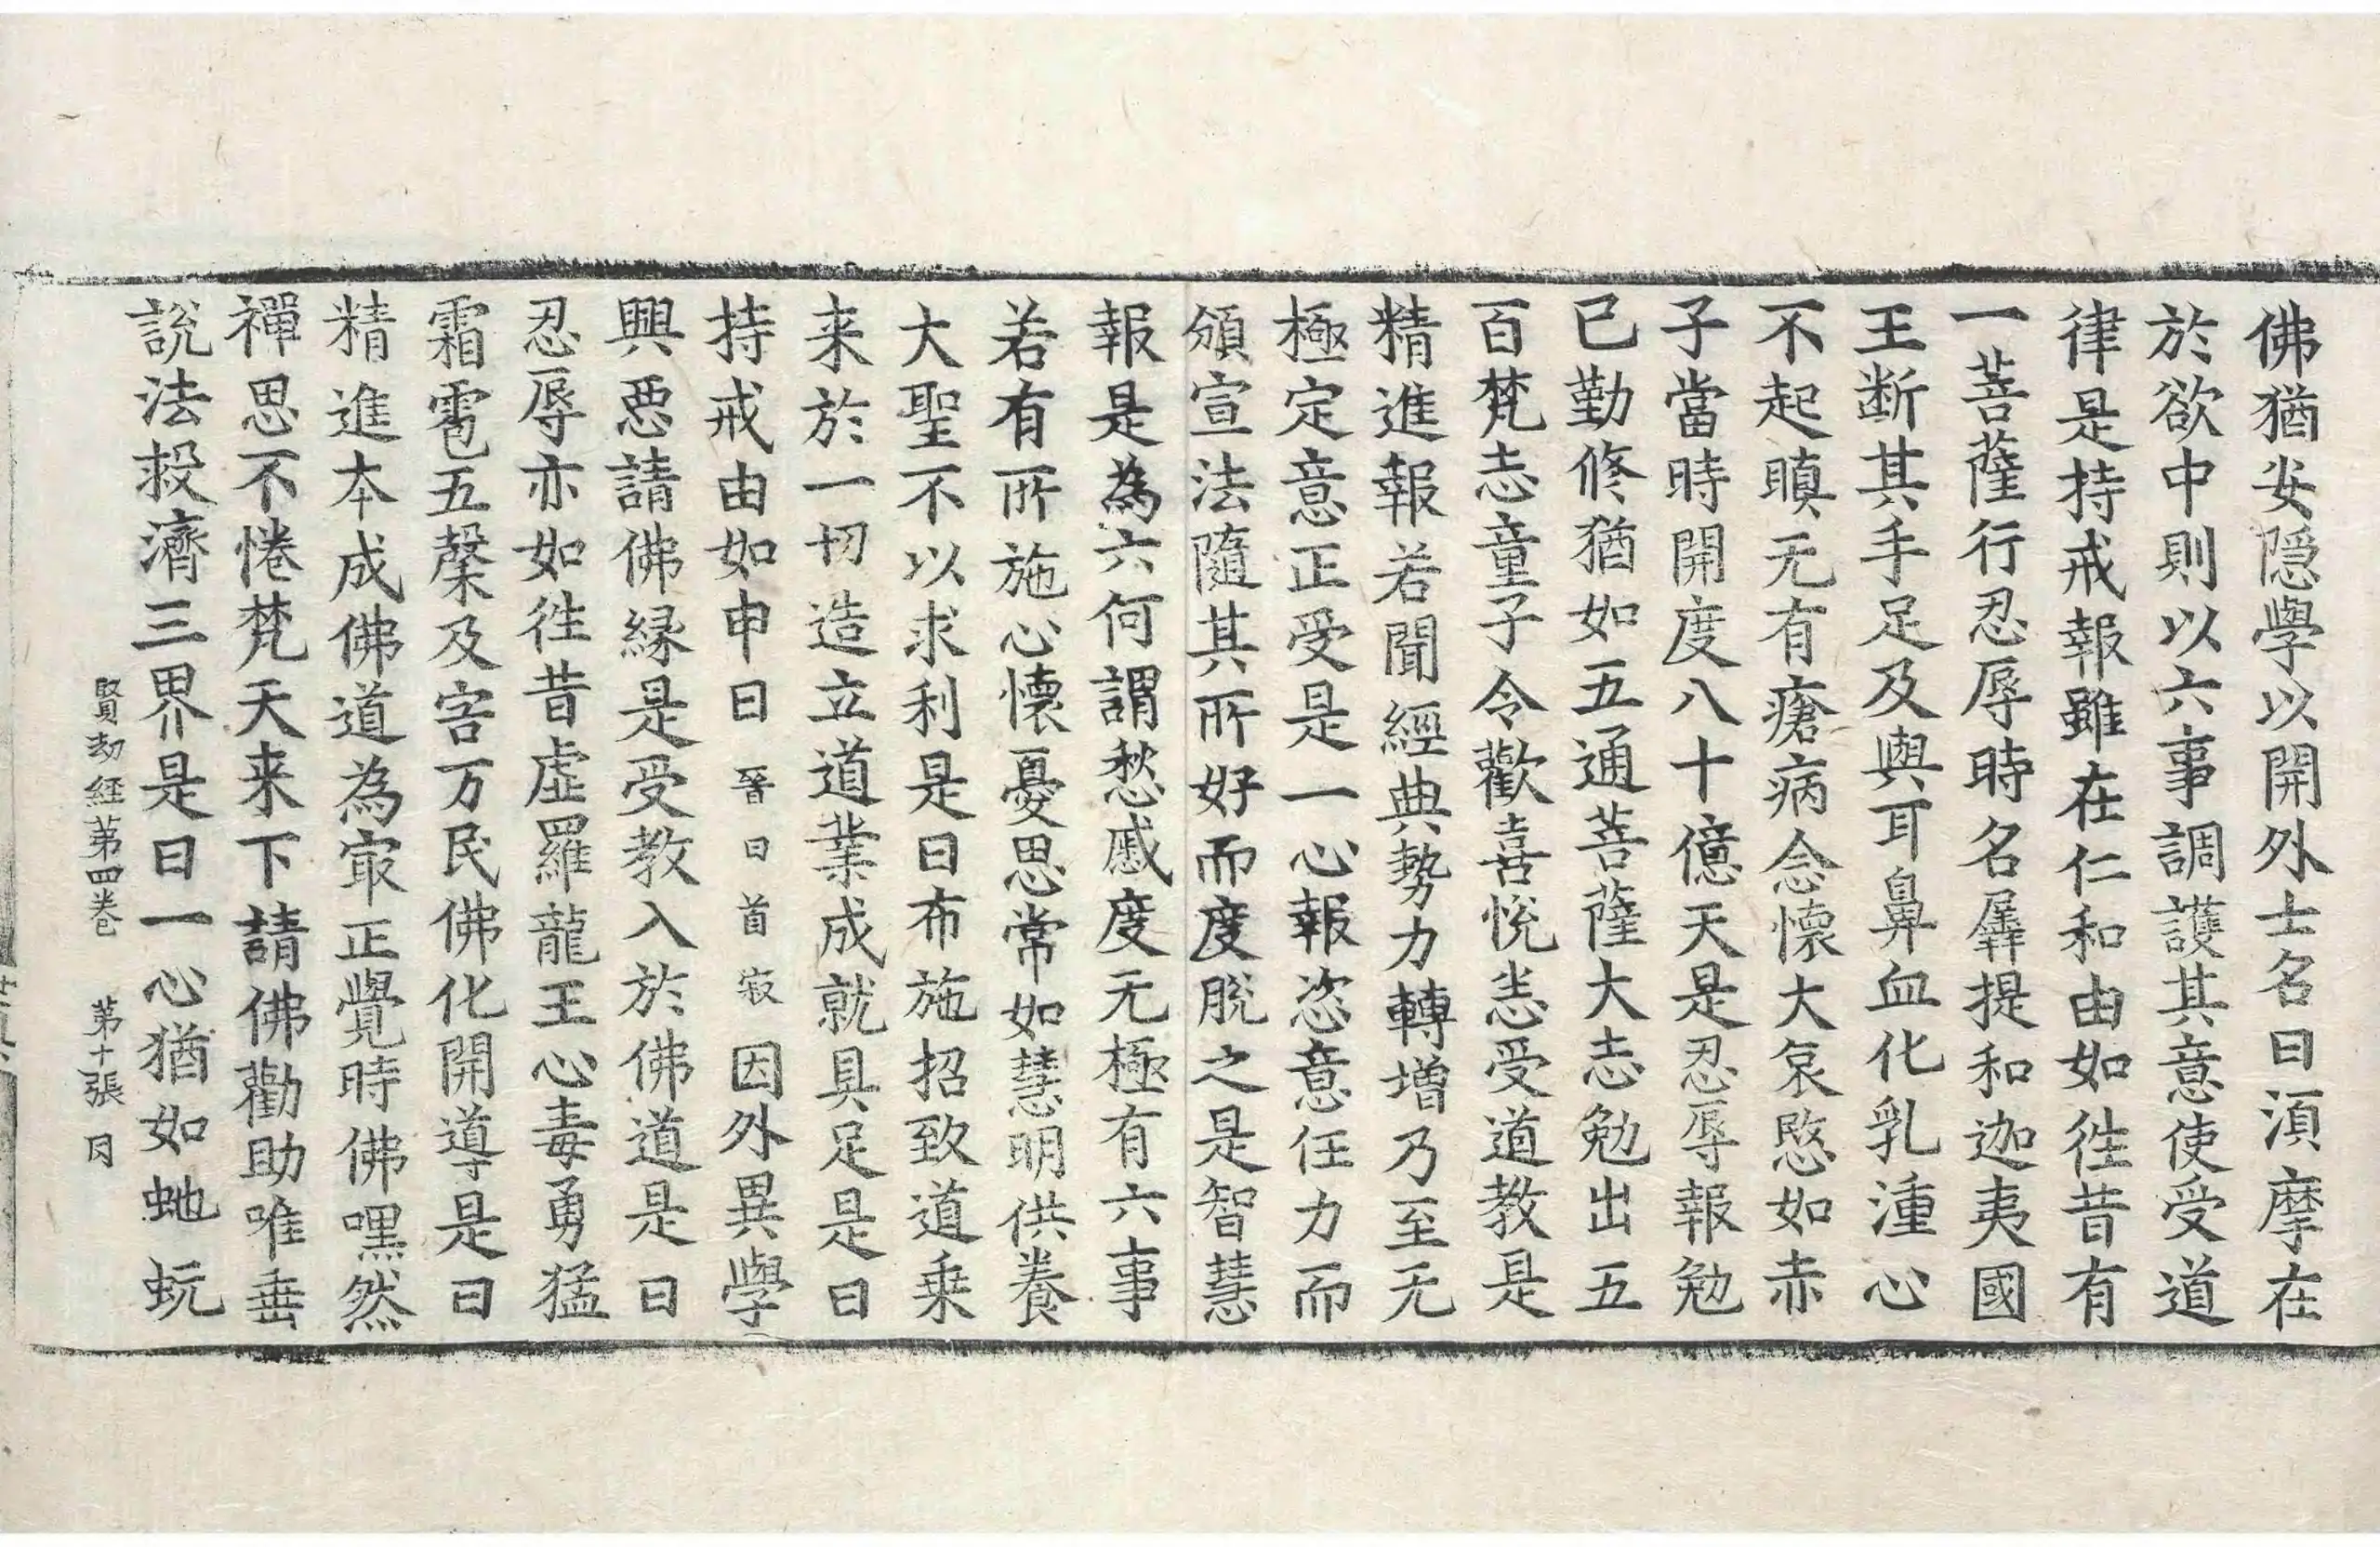 佛猶安隱學以開外士名曰湏摩在
於欲中則以六事調護其意使受道
律是持戒報雖在仁和由如往昔有
一菩薩行忍辱時名羼提和迦夷國
王断其手足及與耳鼻血化乳湩心
不起瞋无有瘡病念懷大哀愍如赤
子當時開度八十億天是忍辱報勉
已勤修猶如五通菩薩大志勉出五
百梵志童子令歡喜悅恙受道教是
精進報若聞經典勢力轉增乃至无
極定意正受是一心報恣意任力而
頒宣法隨其所好而度脫之是智慧
報是為六何謂愁慼度无極有六事
若有所施心懷憂思常如慧明供養
大聖不以求利是曰布施招致道乗
来於一切造立道業成就具足是曰
持戒由如申日晉曰首寂因外異學
興惡請佛緣是受教入於佛道是曰
忍辱亦如往昔虛羅龍王心毒勇猛
霜雹五糓及害万民佛化開導是曰
精進本成佛道為㝡正覺時佛嘿然
禪思不惓梵天来下請佛勸助唯垂
說法救濟三界是曰一心猶如虵蚖
賢劫經第四卷　第十張　同